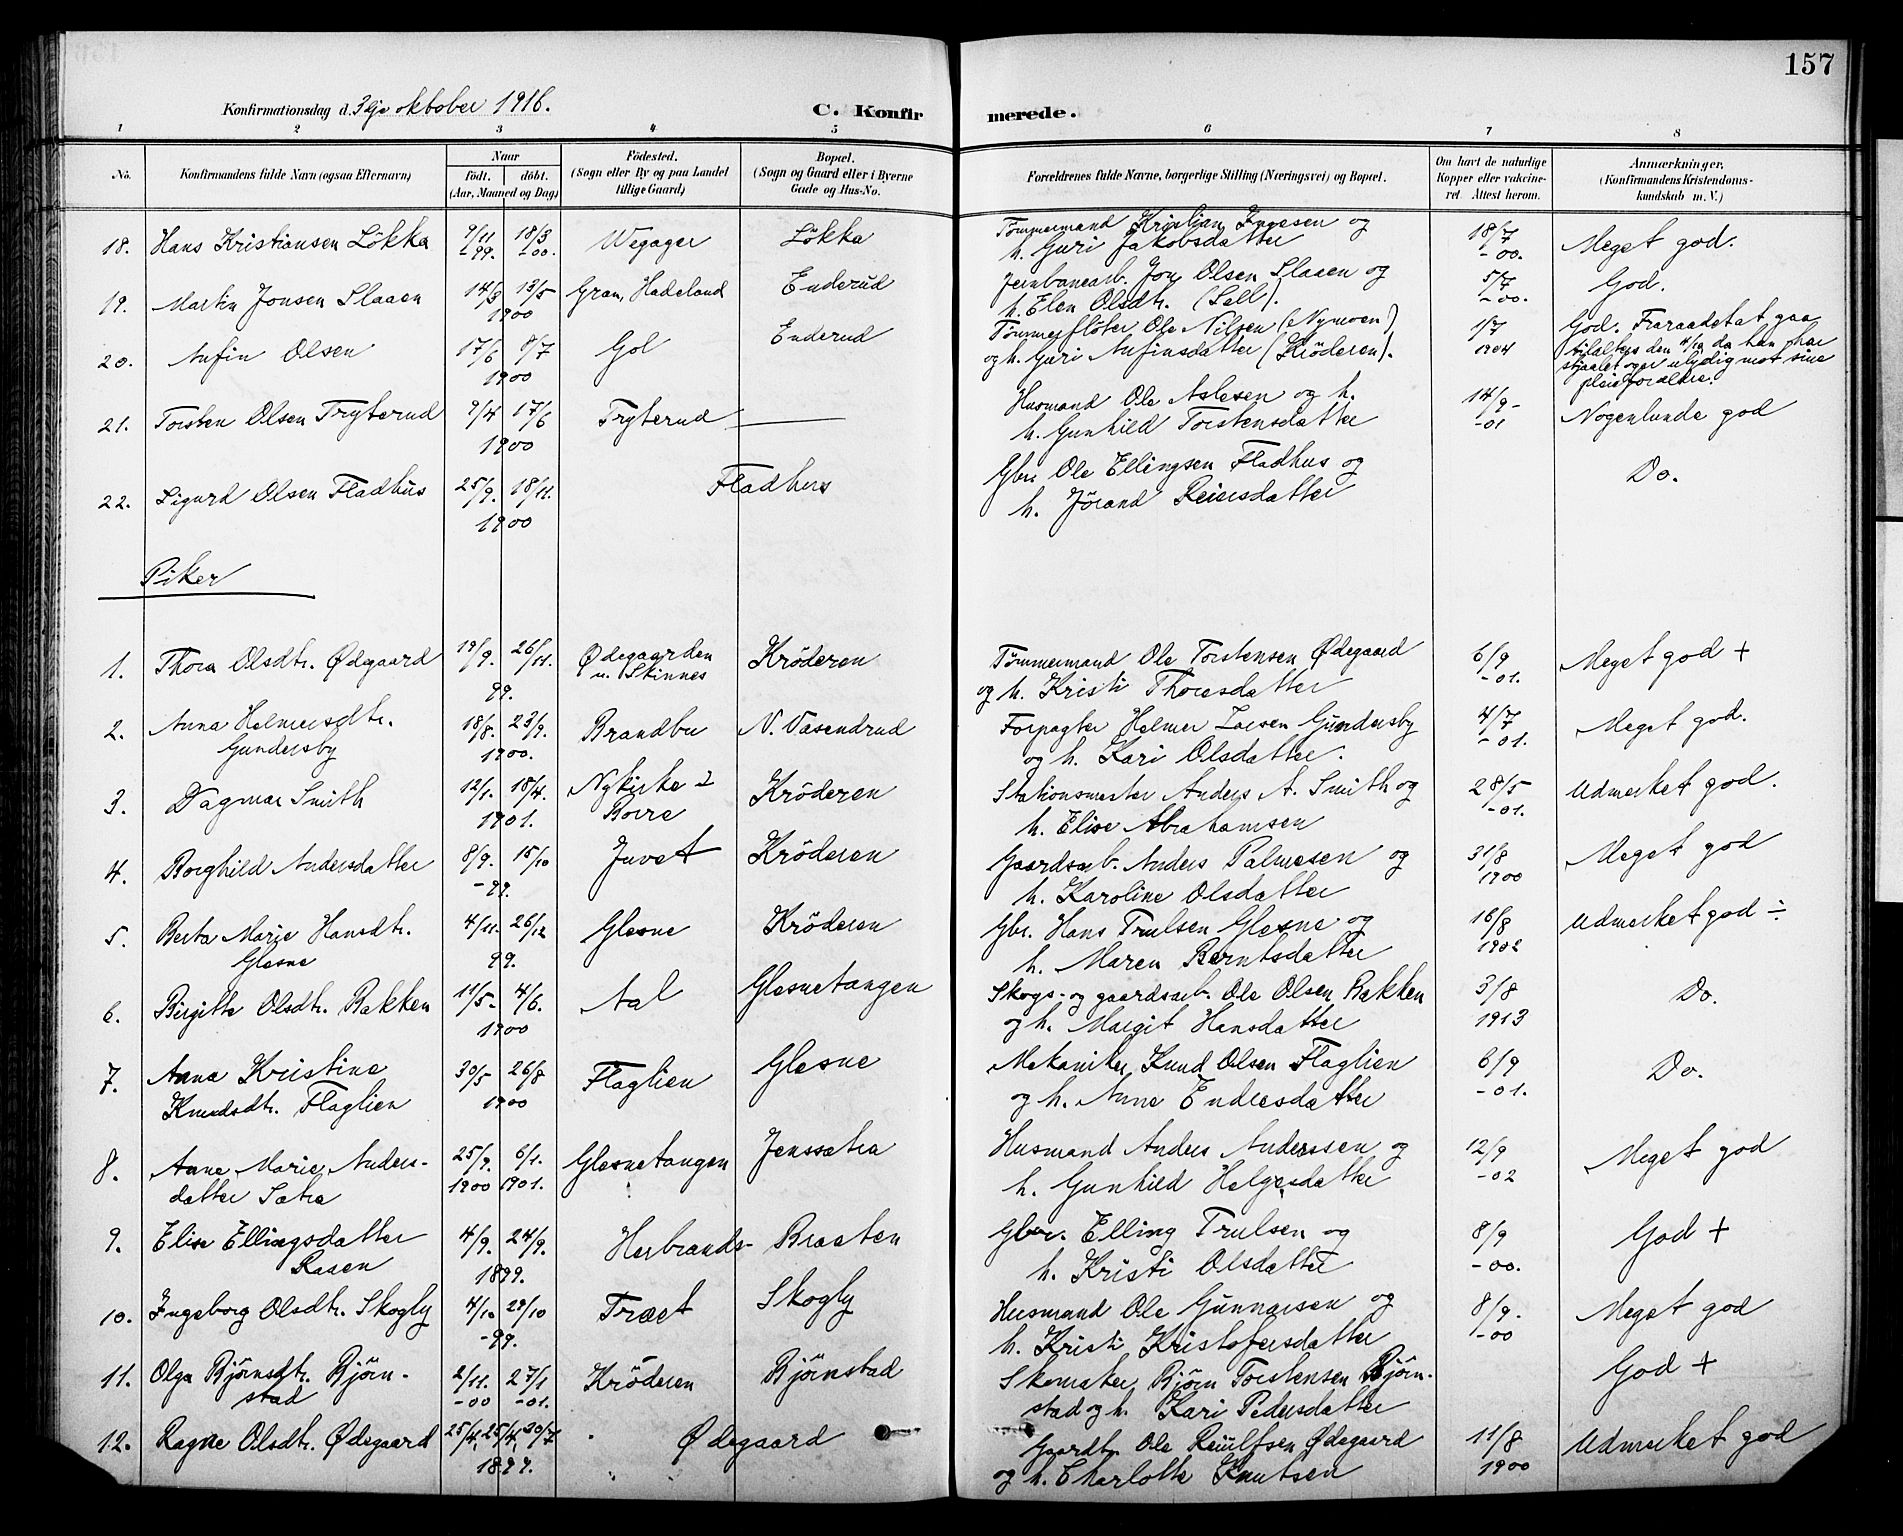 157
Konfirmationsdag d. 3dje oktober 1916.
C. Konfirmerede.
1 2 3 4 5 6 7 8
No.
Konfirmandens fulde Navn (ogsaa Efternavn)
Naar
födt. döbt.
(Aar, Maaned og Dag)
Födested.
(Sogn eller By og paa Landet
tillige Gaard)
Bopæl.
(Sogn og Gaard eller i Byerne
Gade og Hus-No.
Forældrenes fulde Navne, borgerlige Stilling (Næringsvei) og Bopæl.
Om havt de naturlige
Kopper eller vakcine-
ret. Attest herom.
Anmærkninger.
(Konfirmandens Kristendoms-
kundskab m. V.)
18. Hans Kristiansen Lökka 9/11 18/3 Wegager Lökka Tömmermand Kristian Ingesen og 18/7 Meget god.
-99. -00. h. Guri Jakobsdatter -00.
19. Martin Jonsen Slaaen 14/3 13/5 Gran, Hadeland Enderud Jernbanearb. Jon Olsen Slaaen og 5/7 God.
1900 h. Elen Olsdtr. (Sell). -00.
20. Anfin Olsen 17/6 8/7 Gol Enderud Tömmerflöter Ole Nilsen (Nymoen) 1/7 God. Fraraadet at gaa
1900 og h. Guri Anfinsdatter (Kröderen). 1904 tilalters den 4/10 da han har
stjaalet og er ulydig mot sine
pleieforældre.
21. Torsten Olsen Tryterud 9/4 17/6 Tryterud — Husmand Ole Aslesen og h. 14/9- Nogenlunde god
1900 h. Gunhild Torstensdatter -01
22. Sigurd Olsen Fladhus 25/9. 18/11. Fladhus Gbr. Ole Ellingsen Fladhus og Do.
1900 h. Jörand Reiersdatter
Piker
1. Thora Olsdtr. Ødegaard 19/9. 26/11. Ødegaarden Kröderen Tömmermand Ole Torstensen Ødegaard 6/9 Meget god +
99. u. Skinnes og h. Kristi Thoresdatter -01.
2. Anna Helmersdtr. 18/8. 23/9. Brandbu N. Vasendrud Forpagter Helmer Larsen Gundersby 4/7 Meget god.
Gundersby 1900. og h. Kari Olsdatter. -01.
3. Dagmar Smith 12/1. 18/4. Nykirke i Kröderen Stationsmester Anders A. Smith og 28/5 Udmerket god.
1901. Borre h. Elise Abrahamsen -01.
4. Borghild Andersdatter 8/9. 15/10 Juvet Kröderen Gaardsarb. Anders Palmesen og 31/8 Meget god
-99. h. Karoline Olsdatter 1900
5. Berta Marie Hansdtr. 4/11. 26/12 Glesne Kröderen Gbr. Hans Trulsen Glesne og 16/8 Udmerket god ÷
Glesne 99. h. Maren Berntsdatter 1902
6. Birgitte Olsdtr. Bakken 11/5. 4/6. Aal Glesnetangen Skogs- og gaardsarb. Ole Olsen Bakken 3/8 Do.
1900 og h. Margit Hansdatter 1913
7. Anna Kristine 30/5 26/8 Flaglien Glesne Mekaniker Knud Olsen Flaglien 6/9 Do.
Knudsdtr. Flaglien 1900 og h. Anne Endresdatter -01.
8. Anne Marie Anders- 25/9. 6/1. Glesnetangen Jenssætra Husmand Anders Anderssen og 12/9 Meget god
datter Sætra 1900 1901. h. Gunhild Helgesdatter -02
9. Elise Ellingsdatter 4/9. 24/9. Herbrands-Braaten Gbr. Elling Trulsen og 8/9 God +
Raaen 1899. h. Kristi Olsdatter -00.
10. Ingeborg Olsdtr. Skogly 4/10 29/10 Træet Skogly Husmand Ole Gunnarsen og 8/9. Meget god
-99. h. Kristi Kristofersdatter -00
11. Olga Björnsdtr. Björn- 2/11. 27/1 Kröderen Björnstad Skomaker Björn Torstensen Björn- God +
stad -00 -01. stad og h. Kari Pedersdatter
12. Ragne Olsdtr. Ødegaard 25/4, 25/4, 30/7 Ødegaard Gaardbr. Ole Reiulfsen Ødegaard 11/8 Udmerket god
1899. og h. Charlotte Knutsen 1900